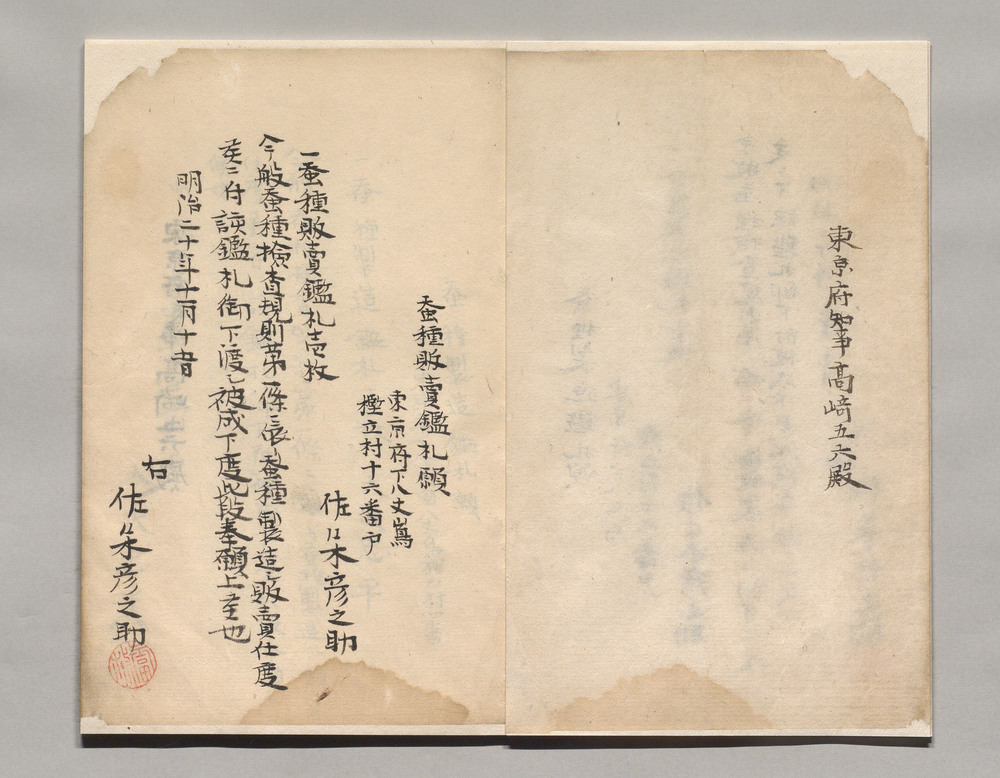 東京府知事高崎五六殿
蚕種販賣鑑札願
東京府下八丈嶌
樫立村十六番戸
佐々木彦之助
一蚕種販賣鑑札壱枚
今般蚕種撿査規則第一條ニ依蚕種製造販賣仕度
候ニ付該鑑札御下渡シ被成下度此段奉願上候也
明治二十年十一月十五日
右
佐々木彦之助